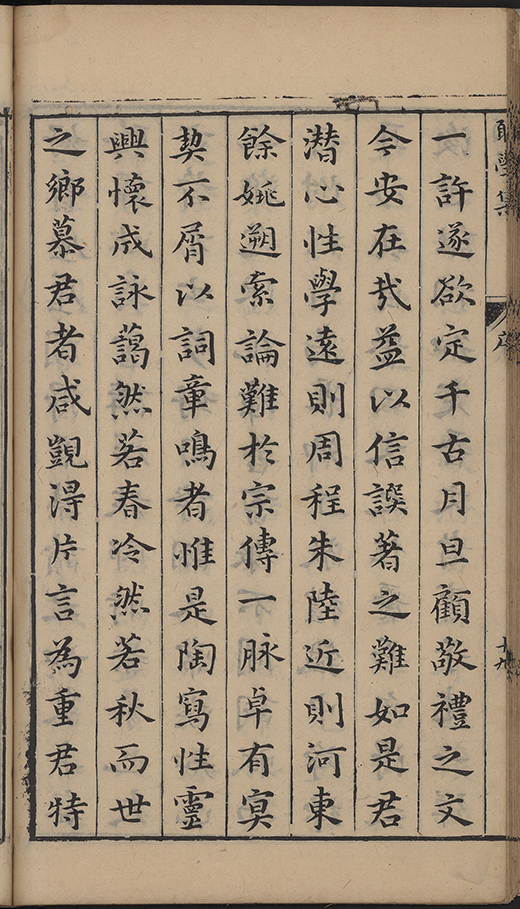 學集
序
十九
一許遂欲定千古月旦顧敬禮之文
今安在㢤益以信譔著之難如是君
潜心性學遠則周程朱陸近則河東
餘姚遡索論難於宗傳一脉卓有冥
契不屑以詞章鳴者惟是陶寫性靈
興懷成詠藹然若春冷然若秋而世
之鄉慕君者咸覬淂片言為重君特